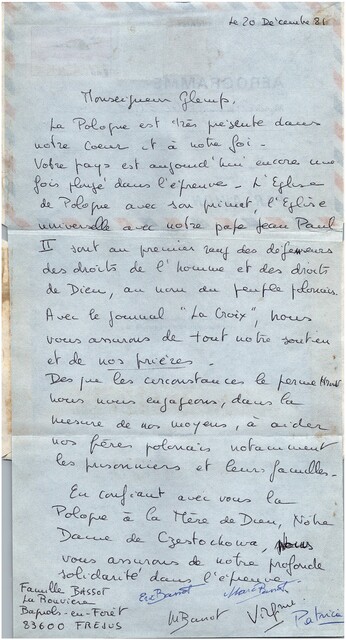 le 20 Décembre 81
Monseigneur Glemp,
La Pologne est très présente dans
notre coeur et à notre foi -
Votre pays est aujourd'hui encore une
fois plongé dans l'épreuve - L'Eglise
de Pologne avec son primat, l'Eglise
universelle avec notre pape Jean Paul
II sont au premier rang des défenseurs
des droits de l'homme et des droits
de Dieu, au nom du peuple polonais.
Avec le journal "La Croix", nous
vous assurons de tout notre soutien
et de nos prières.
Dès que les circonstances le permettront
nous nous engageons, dans la
mesure de nos moyens, à aider
nos frères polonais notamment
les prisonniers et leurs familles -
En confiant avec vous la
Pologne à la Mère de Dieu, Notre
Dame de Czestochowa, nous
vous assurons de notre profonde
solidarité dans l'épreuve
Famille BASSOT
La Bouvière
Bagnols-en-Forêt
83600 FREJUS
Bassot
Marie Bassot
M Bassot
Virginie
Patricia
AEROGRAMME